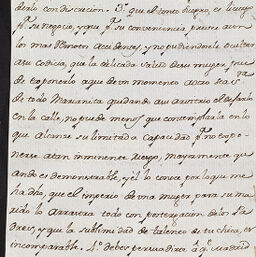 derlo con discrecion. 3º que el tonto
pr su negocio, y que pr su conveniencia
los mas accidentes, y no pudiendole ocultar
su codicia, que la delicada salud de su muger, pue-
de exponerlo a que de un momento a otro
de todo Marianita quedando a su arvitrio el dejarlo
en la calle, no puede menos que contemplarla en lo
que alcanze su limitada capacidad pr no expo-
nerse a tan inminente riesgo, mayormente qu
ando es demostrable, y él lo conoce por lo que me
ha dho, que el imperio de una muger para su ma-
rido lo arrastra todo con postergacion de los Pa-
dres, y que la sublimidad de talento de tu chica, es
incomparable. 4º debes persuadirte a qe